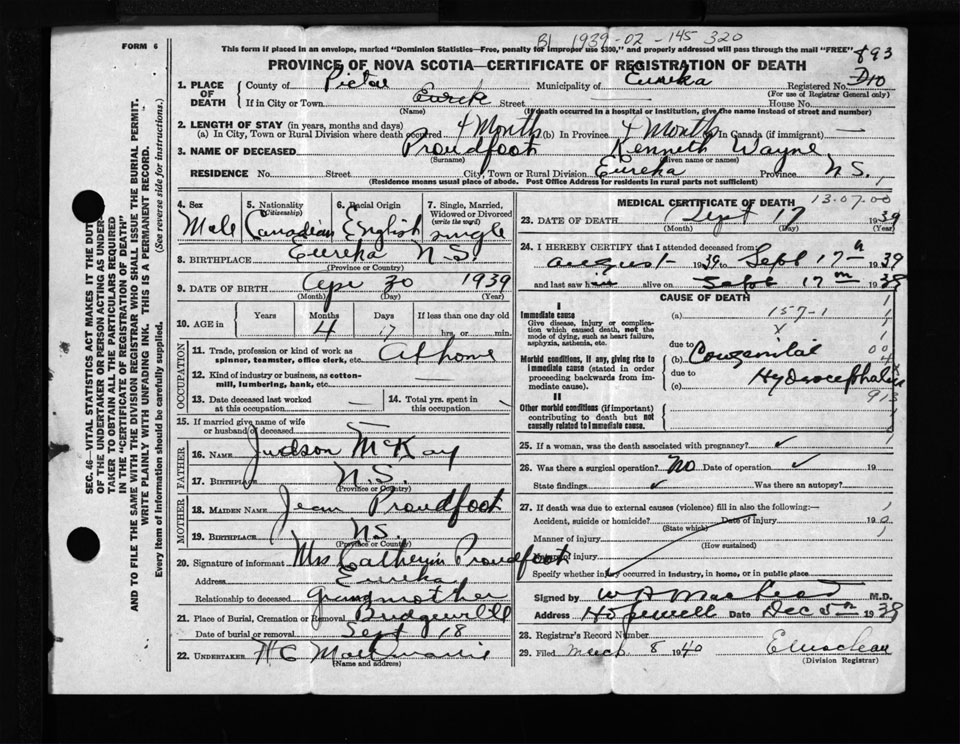 B1 1939-02-145 320
FORM 6
This form if placed in an envelope, marked "Dominion Statistics—Free, penalty for improper use $300," and properly addressed will pass through the mail "FREE"
893
PROVINCE OF NOVA SCOTIA—CERTIFICATE OF REGISTRATION OF DEATH
1. PLACE OF DEATH County of Pictou Municipality of Eureka Registered No.
(For use of Registrar General only)
If in City or Town Street House No.
(Name) (If death occurred in a hospital or institution, give the name instead of street and number)
2. LENGTH OF STAY (in years, months and days)
(a) In City, Town or Rural Division where death occurred 4 Months (b) In Province 4 Months In Canada (if immigrant) —
3. NAME OF DECEASED Proudfoot Kenneth Wayne
(Surname) (Given name or names)
RESIDENCE No. Street City, Town or Rural Division Eureka Province N.S.
(Residence means usual place of abode. Post Office Address for residents in rural parts not sufficient)
SEC. 46—VITAL STATISTICS ACT MAKES IT THE DUTY
OF THE UNDERTAKER OR PERSON ACTING AS UNDER-
TAKER TO OBTAIN ALL THE PARTICULARS REQUIRED
IN THE "CERTIFICATE OF REGISTRATION OF DEATH"
AND TO FILE THE SAME WITH THE DIVISION REGISTRAR WHO SHALL ISSUE THE BURIAL PERMIT.
WRITE PLAINLY WITH UNFADING INK. THIS IS A PERMANENT RECORD.
Every item of Information should be carefully supplied. (See reverse side for instructions.)
4. Sex 5. Nationality (Citizenship) 6. Racial Origin 7. Single, Married, Widowed or Divorced (write the word)
Male Canadian English single
8. BIRTHPLACE Eureka N.S.
(Province or Country)
9. DATE OF BIRTH Apr 30 1939
(Month) (Day) (Year)
10. AGE in Years Months Days If less than one day old
4 17 hrs. or min.
OCCUPATION
11. Trade, profession or kind of work as spinner, teamster, office clerk, etc. At home
12. Kind of industry or business, as cotton-mill, lumbering, bank, etc.
13. Date deceased last worked at this occupation —
14. Total yrs. spent in this occupation —
15. If married give name of wife or husband of deceased
FATHER
16. NAME Judson McKay
17. BIRTHPLACE N.S.
(Province or Country)
MOTHER
18. MAIDEN NAME Jean Proudfoot
19. BIRTHPLACE N.S.
(Province or Country)
20. Signature of informant Mrs Catherin Proudfoot
Address Eureka
Relationship to deceased grandmother
21. Place of Burial, Cremation or Removal Bridgeville
Date of burial or removal Sept 18
22. UNDERTAKER
(Name and address)
MEDICAL CERTIFICATE OF DEATH
13.07.00
23. DATE OF DEATH Sept 17 1939
(Month) (Day) (Year)
24. I HEREBY CERTIFY that I attended deceased from
August 1939 to Sept 17th 1939
and last saw him alive on Sept 17th 1939
CAUSE OF DEATH
I
Immediate cause (a) 157-1
Give disease, injury or complication which caused death, not the mode of dying, such as heart failure, asphyxia, asthenia, etc.
due to
Morbid conditions, if any, giving rise to immediate cause (stated in order proceeding backwards from immediate cause) (b) Congenital
due to
(c) Hydrocephalus
913
II
Other morbid conditions (if important) contributing to death but not causally related to immediate cause
25. If a woman, was the death associated with pregnancy? ✓
26. Was there a surgical operation? No Date of operation ✓ 19
State findings ✓ Was there an autopsy?
27. If death was due to external causes (violence) fill in also the following:—
Accident, suicide or homicide? Date of injury 19
(State which)
Manner of injury
(How sustained)
Nature of injury
Specify whether injury occurred in industry, in home, or in public place
Signed by W A MacLeod M.D.
Address Hopewell Date Dec 5th 1939
28. Registrar's Record Number
29. Filed March 8 1940
(Division Registrar)